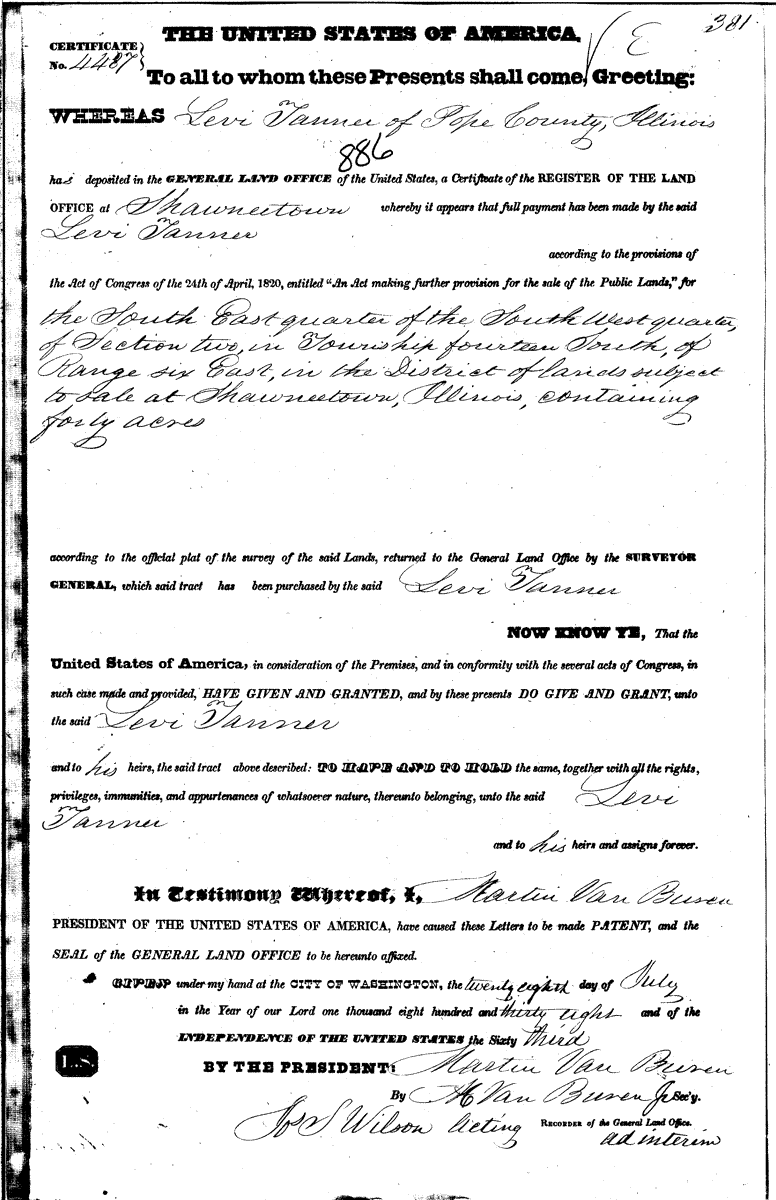 381
THE UNITED STATES OF AMERICA.
E
CERTIFICATE
No. 4487
To all to whom these Presents shall come, Greeting:
WHEREAS Levi Tanner of Pope County, Illinois
886
has deposited in the GENERAL LAND OFFICE of the United States, a Certificate of the REGISTER OF THE LAND
OFFICE at Shawneetown whereby it appears that full payment has been made by the said
Levi Tanner
according to the provisions of
the Act of Congress of the 24th of April, 1820, entitled "An Act making further provision for the sale of the Public Lands," for
the South East quarter of the South West quarter,
of Section two, in Township fourteen South, of
Range six East, in the District of lands subject
to sale at Shawneetown, Illinois, containing
forty acres
according to the official plat of the survey of the said Lands, returned to the General Land Office by the SURVEYOR
GENERAL, which said tract has been purchased by the said Levi Tanner
NOW KNOW YE, That the
United States of America, in consideration of the Premises, and in conformity with the several acts of Congress, in
such case made and provided, HAVE GIVEN AND GRANTED, and by these presents DO GIVE AND GRANT, unto
the said Levi Tanner
and to his heirs, the said tract above described: TO HAVE AND TO HOLD the same, together with all the rights,
privileges, immunities, and appurtenances of whatsoever nature, thereunto belonging, unto the said Levi
Tanner
and to his heirs and assigns forever.
In Testimony Whereof, I, Martin Van Buren
PRESIDENT OF THE UNITED STATES OF AMERICA, have caused these Letters to be made PATENT, and the
SEAL of the GENERAL LAND OFFICE to be hereunto affixed.
GIVEN under my hand at the CITY OF WASHINGTON, the twenty eighth day of July
in the Year of our Lord one thousand eight hundred and thirty eight and of the
INDEPENDENCE OF THE UNITED STATES the Sixty third
L.S.
BY THE PRESIDENT: Martin Van Buren
By M Van Buren Jr Sec'y.
Jos S Wilson Acting RECORDER of the General Land Office.
ad interim